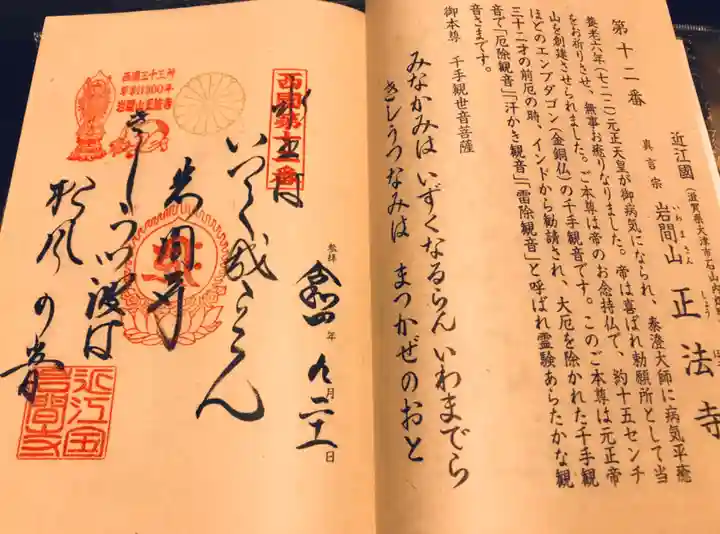 第十二番
近江國（滋賀県大津市石山内
真言宗 岩間山 正法寺
いわまさん しょう ほ
養老六年（七二二）元正天皇が御病気になられ、泰澄大師に病気平癒
をお祈りさせ、無事お癒りなりました。帝は喜ばれ勅願所として当
山を創建させられました。ご本尊は帝のお念持仏で、約十五センチ
ほどのエンブダゴン（金銅仏）の千手観音です。このご本尊は元正帝
三十二才の前厄の時、インドから勧請され、大厄を除かれた千手観
音で「厄除観音」「汗かき観音」「雷除観音」と呼ばれ霊験あらたかな観
音さまです。
御本尊 千手観世音菩薩
みなかみは いずくなるらん いわまでら
きしうつなみは まつかぜのおと
奉拝 令和四年 九月二十一日
西国第十二番
水上は
いづく成らん
岩間寺
きしうつ波は
松風の音
西国三十三所
草創1300年
岩間山正法寺
近江国
岩間寺